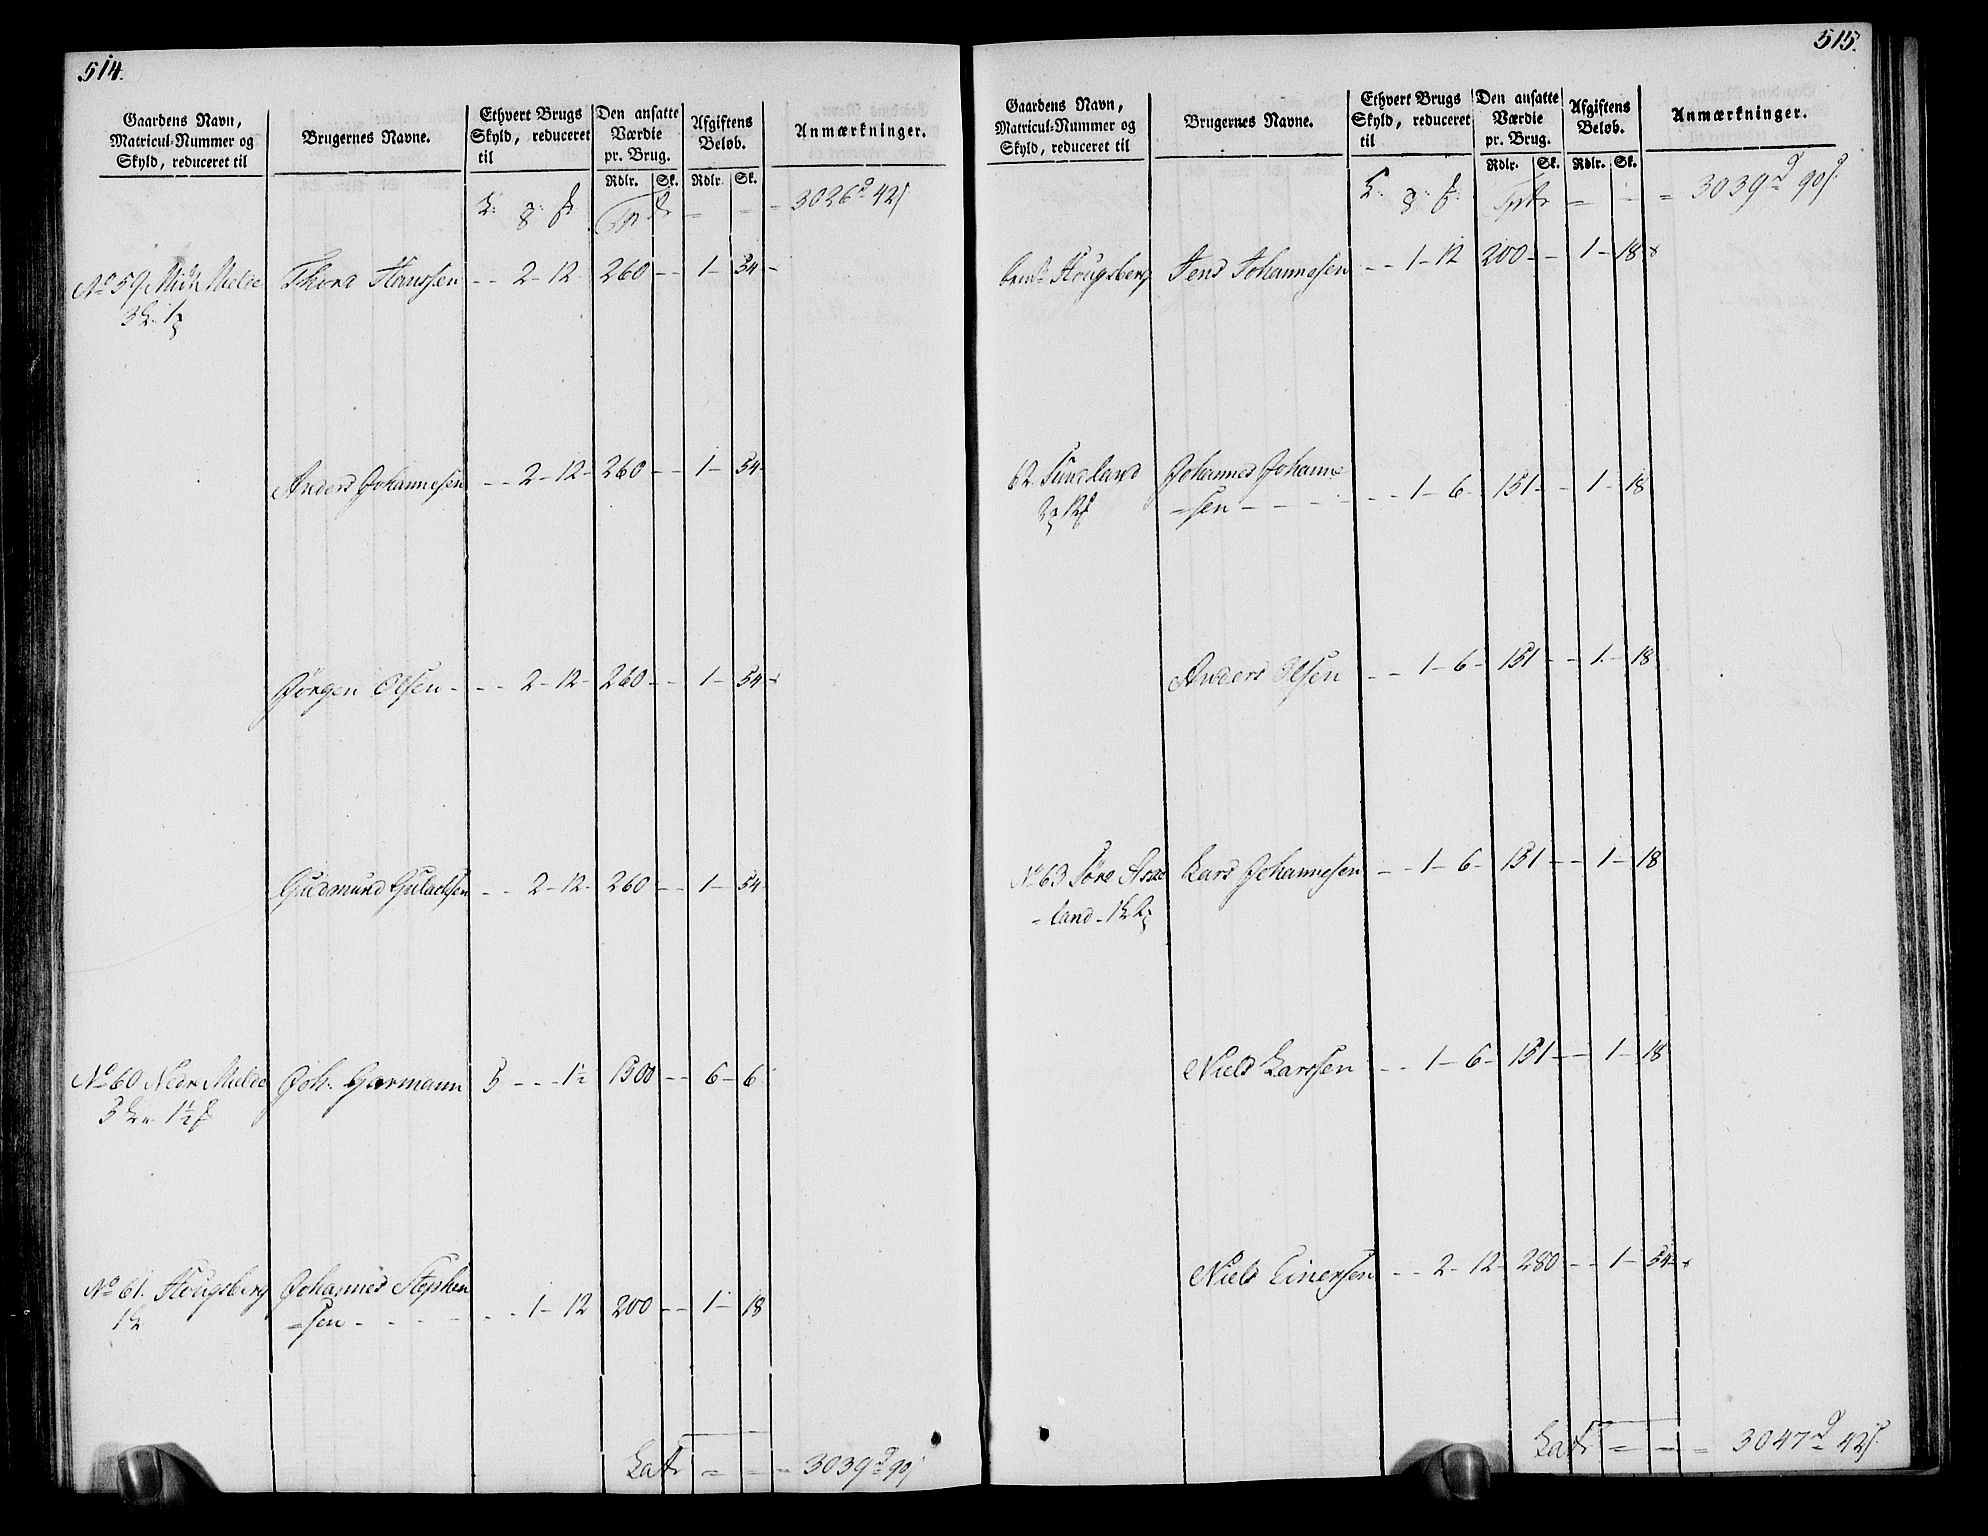 514.
Gaardens Navn, Matricul-Nummer og Skyld, reduceret til
Brugernes Navne.
Ethvert Brugs Skyld, reduceret til
Den ansatte Værdie pr. Brug.
Afgiftens Beløb.
Anmærkninger.
Rdlr. Sk. Rdlr. Sk.
3026 42
No 59 Midt Melde Thord Hanssen - - 2 - 12 - 260 - - 1 - 54 -
Anders Johannesen - - 2 - 12 - 260 - - 1 - 54 -
Jørgen Olsen - - - 2 - 12 - 260 - - 1 - 54 -
Gudmund Gulachsen - - 2 - 12 - 260 - - 1 - 54
No 60 Nedre Melde Joh. Garmann 3 - - - 1½ 1500 - - 6 - 6
3 1½
No 61. Hougsberg Johannes Stephen
=sen - - - - - - 1 - 12 200 - - 1 - 18
Lat = = = 3039 90
515.
Gaardens Navn, Matricul-Nummer og Skyld, reduceret til
Brugernes Navne.
Ethvert Brugs Skyld, reduceret til
Den ansatte Værdie pr. Brug.
Afgiftens Beløb.
Anmærkninger.
Rdlr. Sk. Rdlr. Sk.
3039 90
Hougsberg Jens Johannesen - - 1 - 12 200 - - 1 - 18
62 Sundland Johannes Johanne
=sen - - - - - - 1 - 6 - 151 - - 1 - 18
Anders Olsen - - 1 - 6 - 151 - - 1 - 18
No 63 Søre Arne Lars Johannesen - - 1 - 6 - 151 - - 1 - 18
=land
Niels Larssen - - 1 - 6 - 151 - - 1 - 18
Niels Einersen - - 2 - 12 - 280 - - 1 - 54
Lat = = = 3047 42